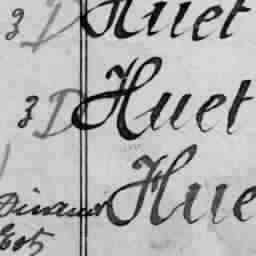 3 D Huet
3 D Huet
Dinan Hue